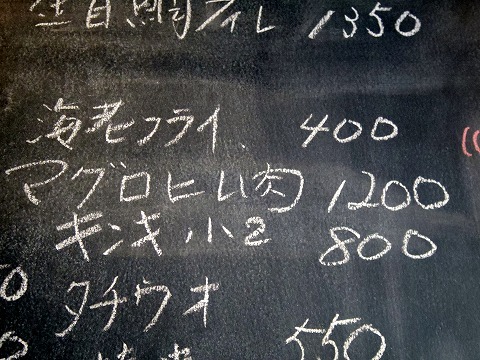 金目鯛フィレ 1350
海老フライ 400
マグロヒレ肉 1200
キンキ小2 800
タチウオ
550